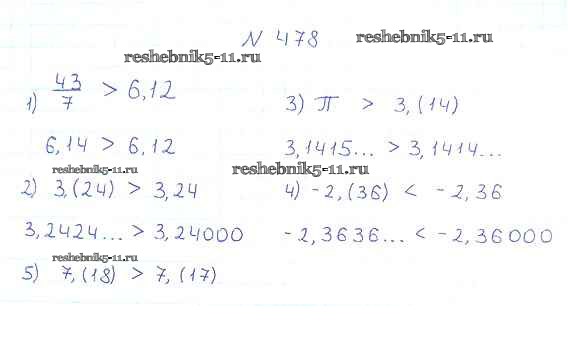 N 478
reshebnik5-11.ru
reshebnik5-11.ru
1) 43/7 > 6,12
6,14 > 6,12
reshebnik5-11.ru
2) 3,(24) > 3,24
3,2424... > 3,24000
reshebnik5-11.ru
5) 7,(18) > 7,(17)
3) π > 3,(14)
3,1415... > 3,1414...
reshebnik5-11.ru
4) -2,(36) < -2,36
-2,3636... < -2,36000